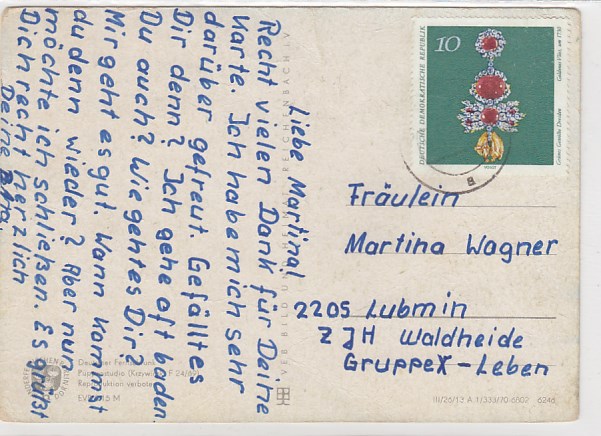 Liebe Martina!
Recht vielen Dank für Deine
Karte. Ich habe mich sehr
darüber gefreut. Gefällt es
Dir denn? Ich gehe oft baden.
Du auch? Wie geht es Dir?
Mir geht es gut. Wann kommst
du denn wieder? Aber nun
möchte ich schließen. Es grüßt
Dich recht herzlich
Deine Petra.
10
DEUTSCHE DEMOKRATISCHE REPUBLIK
Goldenes Vlies, um 1730
Grünes Gewölbe Dresden
Fräulein
Martina Wagner
2205 Lubmin
ZJH Waldheide
Gruppe X-Leben
VEB BILD UND HEIMAT REICHENBACH i. V.
Deutscher Fernsehfunk
F 24/69
Reproduktion verboten
15 M
III/26/13 A 1/333/70 6502 6246